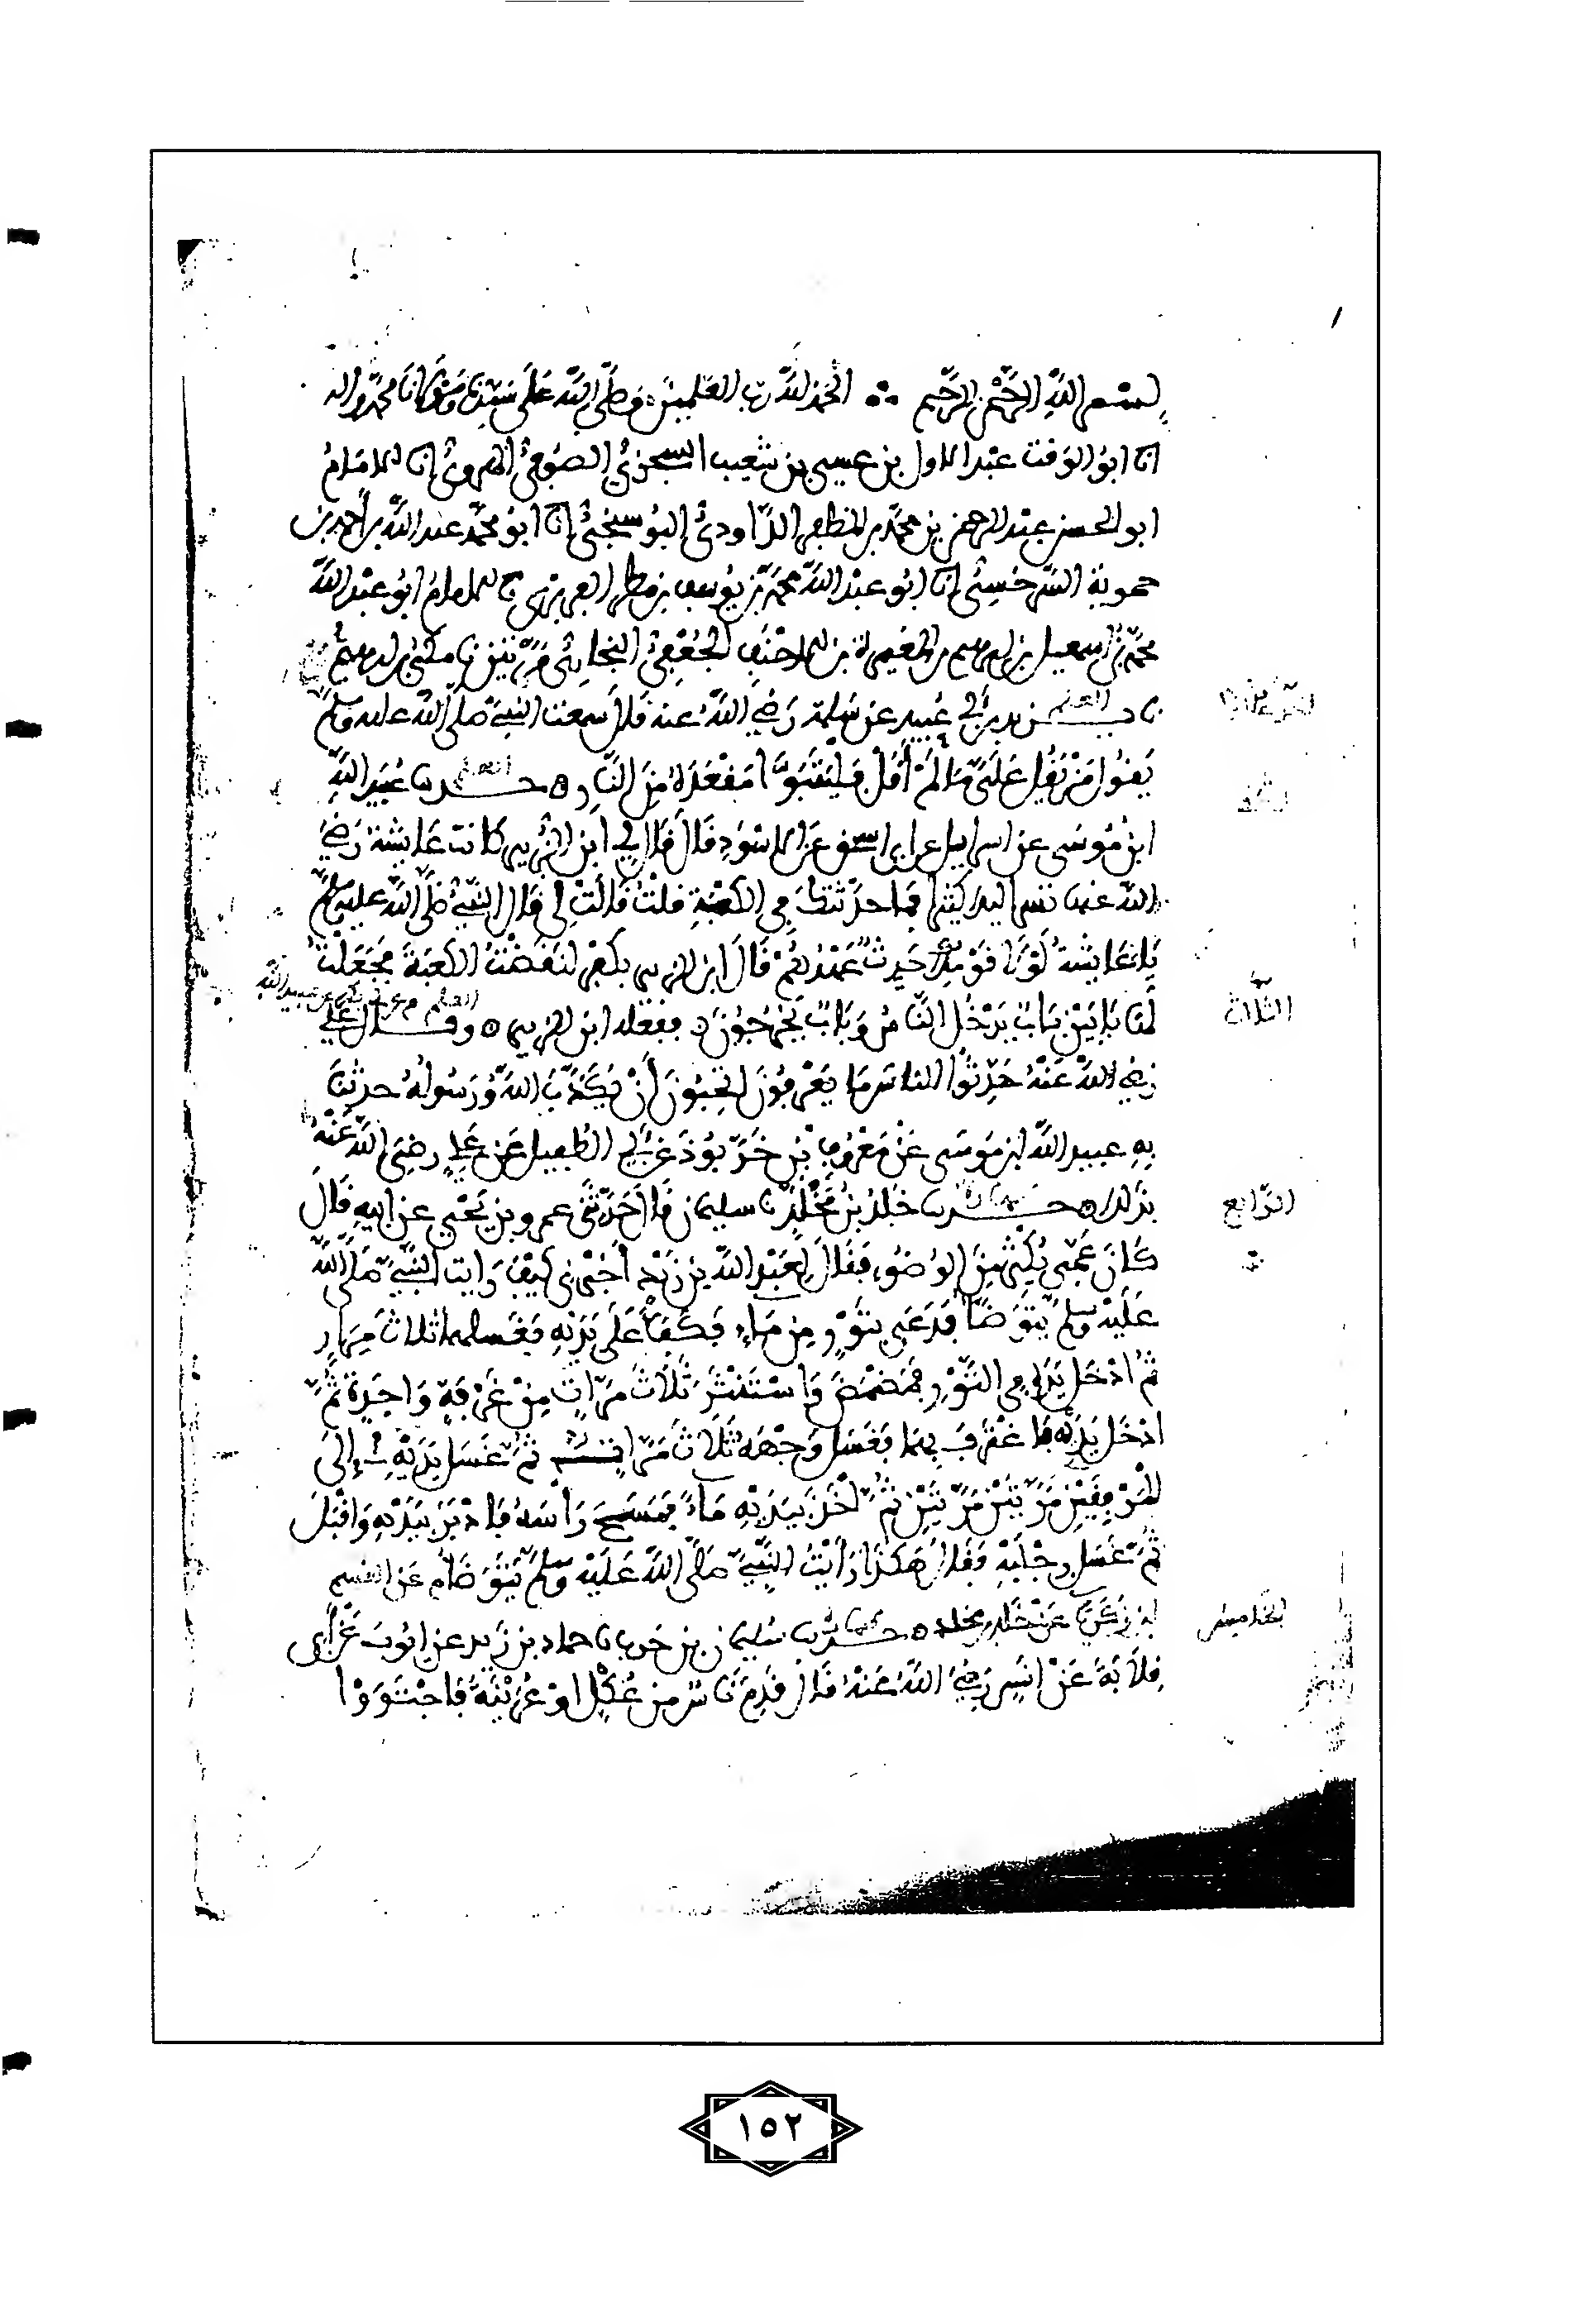 بسم الله الرحمن الرحيم الحمد لله رب العلمين وصلى الله على سيدنا ومولانا محمد واله
انا ابو الوقت عبد الاول بن عيسى بن شعيب السجزي الصوفي الهروي انا الامام
ابو الحسن عبد الرحمن بن محمد بن المظفر الداودي البوسنجي انا ابو محمد عبد الله بن احمد بن
حموية السرخسي انا ابو عبد الله محمد بن يوسف بن مطر الفربري نا الامام ابو عبد الله
محمد بن اسمعيل بن ابرهيم بن المغيرة بن الاحنف الجعفي البخاري مرتين نا مكي بن ابرهيم
نا يزيد بن ابي عبيد عن سلمة رضي الله عنه قال سمعت النبي صلى الله عليه وسلم
يقول من يقل علي ما لم أقل فليتبوأ مقعده من النار ه حدثنا عبيد الله
العلم
ابن موسى عن اسرايل عن ابي اسحق عن الاسود قال قال لي ابن الزبير كانت عايشة رضي
الله عنها تسر اليك كثيرا فما حدثتك في الكعبة قلت قالت لي قال النبي صلى الله عليه وسلم
يا عايشة لولا قومك حديث عهدهم قال ابن الزبير بكفر لنقضت الكعبة فجعلت
لها بابين باب يدخل الناس وباب يخرجون ففعله ابن الزبير ه وقال علي
الثلاث
العلم
رضي الله عنه حدثوا الناس بما يعرفون اتحبون أن يكذب الله ورسوله حدثنا
به عبيد الله بن موسى عن معروف بن خربوذ عن ابي الطفيل عن علي رضي الله عنه
بذلك ه حدثنا خلد بن مخلد نا سليمان قال حدثني عمرو بن يحيى عن ابيه قال
الرابع
كان عمي يكثر من الوضوء فقال لعبد الله بن زيد أخبرني كيف رايت النبي صلى الله
عليه وسلم يتوضأ فدعى بتور من ماء فكفأ على يديه فغسلهما ثلاث مرار
ثم ادخل يده في التور فمضمض واستنثر ثلاث مرات من غرفة واحدة ثم
ادخل يديه فاغترف بهما فغسل وجهه ثلاث مرات ثم غسل يديه إلى
المرفقين مرتين مرتين ثم اخذ بيديه ماء فمسح رأسه فادبر بيديه واقبل
ثم غسل رجليه فقال هكذا رايت النبي صلى الله عليه وسلم يتوضأ
عن خلد بن مخلد ه حدثنا سليمان بن حرب نا حماد بن زيد عن ايوب عن أبي
الخامس
قلابة عن انس رضي الله عنه قال قدم ناس من عكل او عرينة فاجتووا
١٥٢